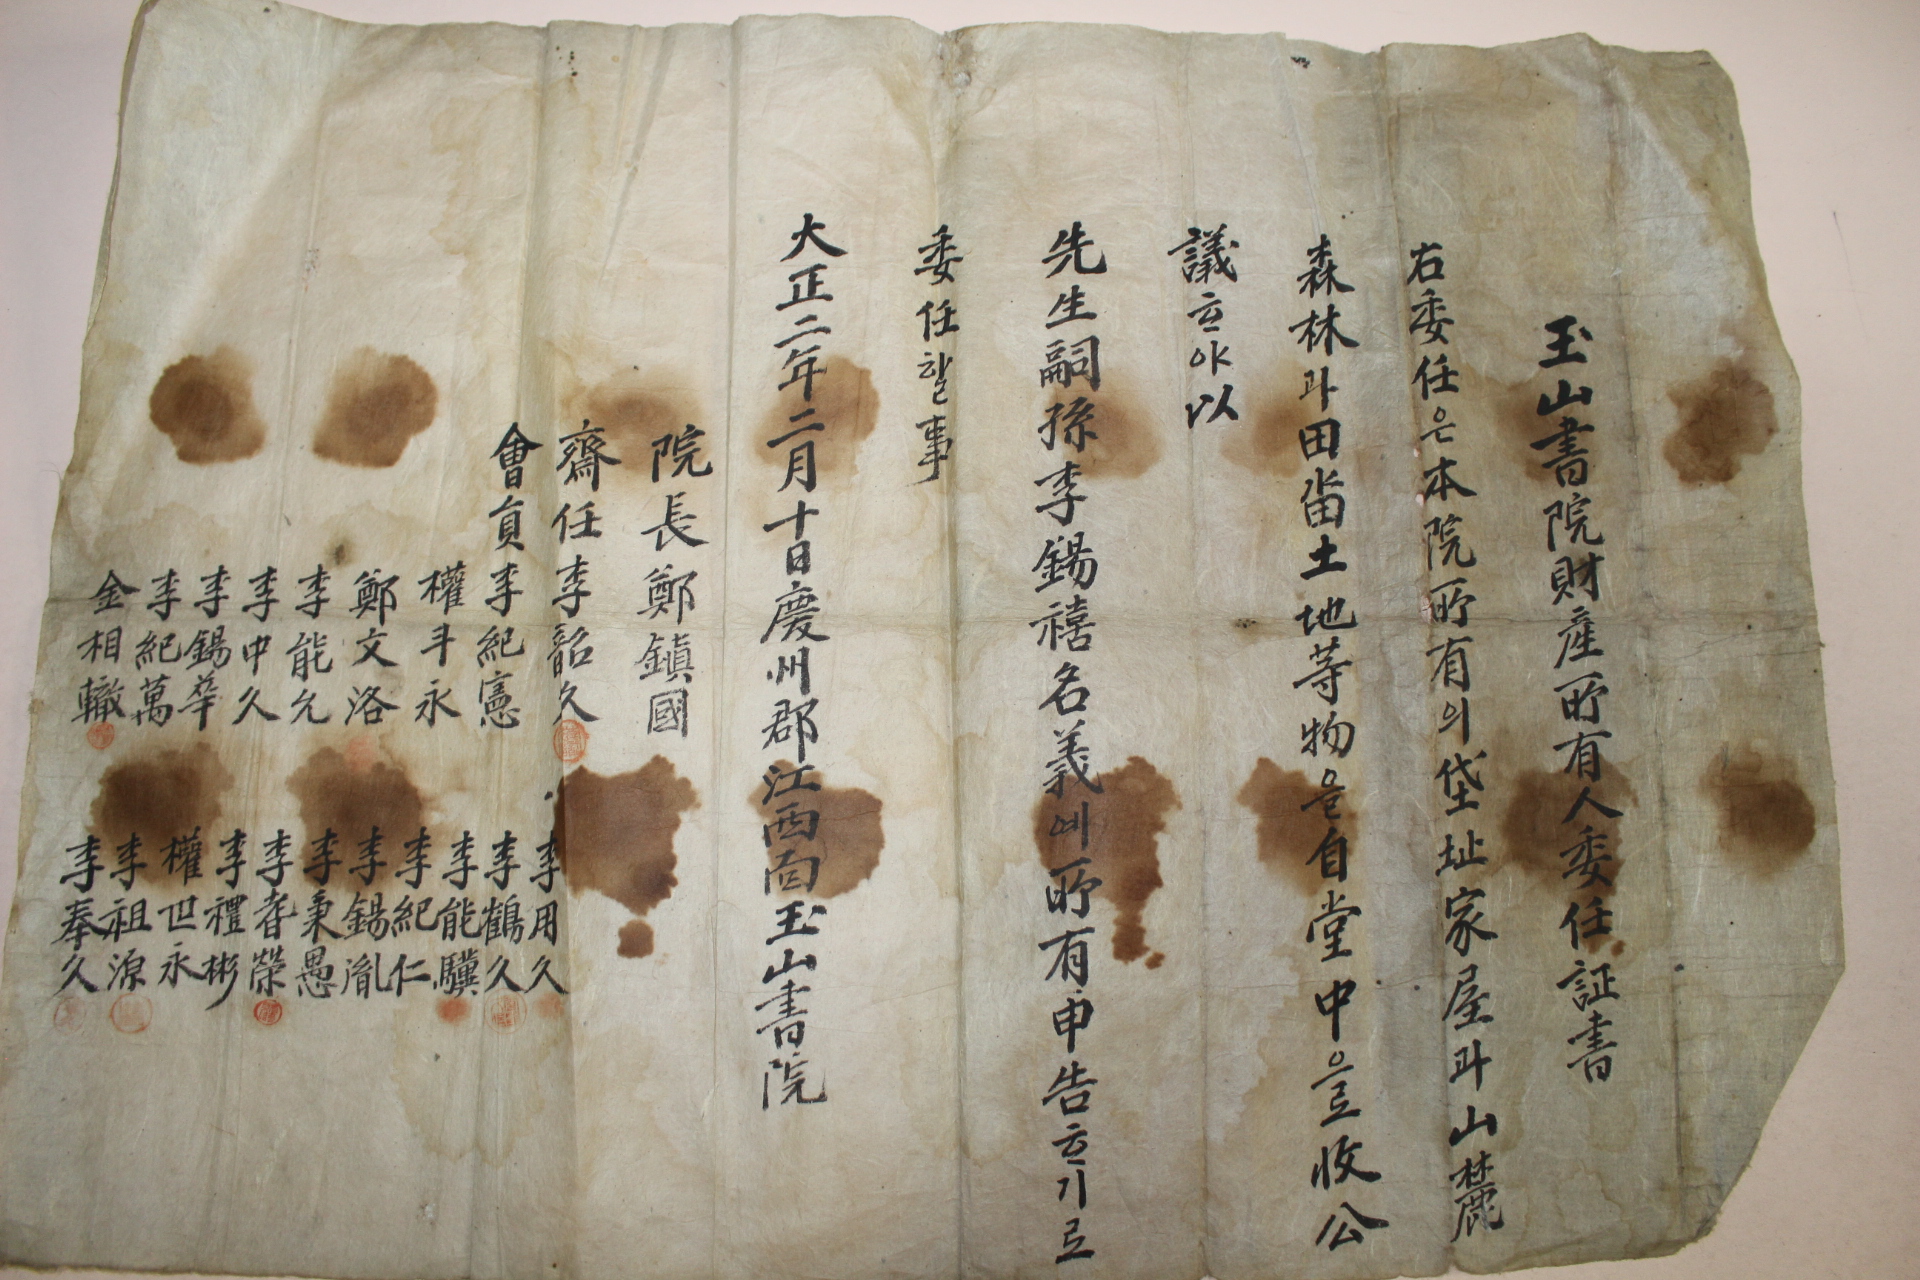 玉山書院財產所有人委任証書
右委任은本院所有의垈址家屋과山麓
森林과田畓土地等物을自堂中으로收公
議하야以
先生嗣孫李錫禧名義에所有申告하기로
委任할事
大正二年二月十日慶州郡江西面玉山書院
院長鄭鎭國
齋任李韶久
會員李紀憲
權斗永
鄭文洛
李能允
李中久
李錫華
李紀萬
金相轍
李用久
李鶴久
李能驥
李紀仁
李錫胤
李秉愚
李耆榮
李禮彬
權世永
李祖源
李奉久